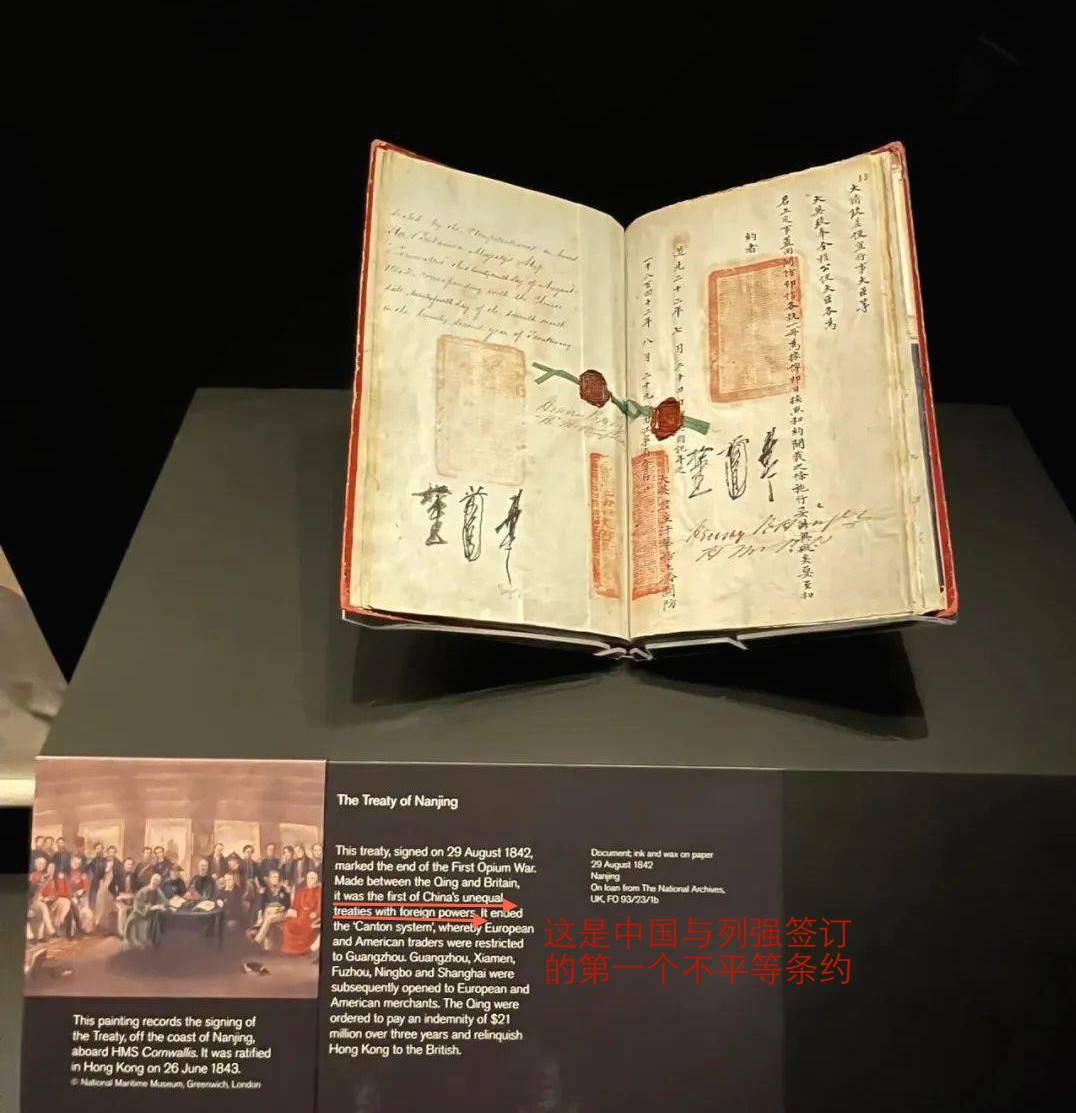 sealed by the Plenipotentiaries on board
Her Britannic Majesty's Ship
this twenty ninth day of August
corresponding with the Chinese
date, twenty fourth day of the seventh month
in the twenty second year of Taoukwang
13
大清欽差便宜行事大臣等
大英欽奉全權公使大臣各為
君上定事蓋用關防印信各執一冊為據俾即日按照和約開載之條施行妥辦無礙矣要至和
約者
道光二十二年七月二十四日
一千八百四十二年八月二十九日
Henry Pottinger
The Treaty of Nanjing
This treaty, signed on 29 August 1842,
marked the end of the First Opium War.
Made between the Qing and Britain,
it was the first of China's unequal
treaties with foreign powers. It ended
the 'Canton system', whereby European
and American traders were restricted
to Guangzhou. Guangzhou, Xiamen,
Fuzhou, Ningbo and Shanghai were
subsequently opened to European and
American merchants. The Qing were
ordered to pay an indemnity of $21
million over three years and relinquish
Hong Kong to the British.
Document; ink and wax on paper
29 August 1842
Nanjing
On loan from The National Archives,
UK, FO 93/23/1b
这是中国与列强签订
的第一个不平等条约
This painting records the signing of
the Treaty, off the coast of Nanjing,
aboard HMS Cornwallis. It was ratified
in Hong Kong on 26 June 1843.
© National Maritime Museum, Greenwich, London